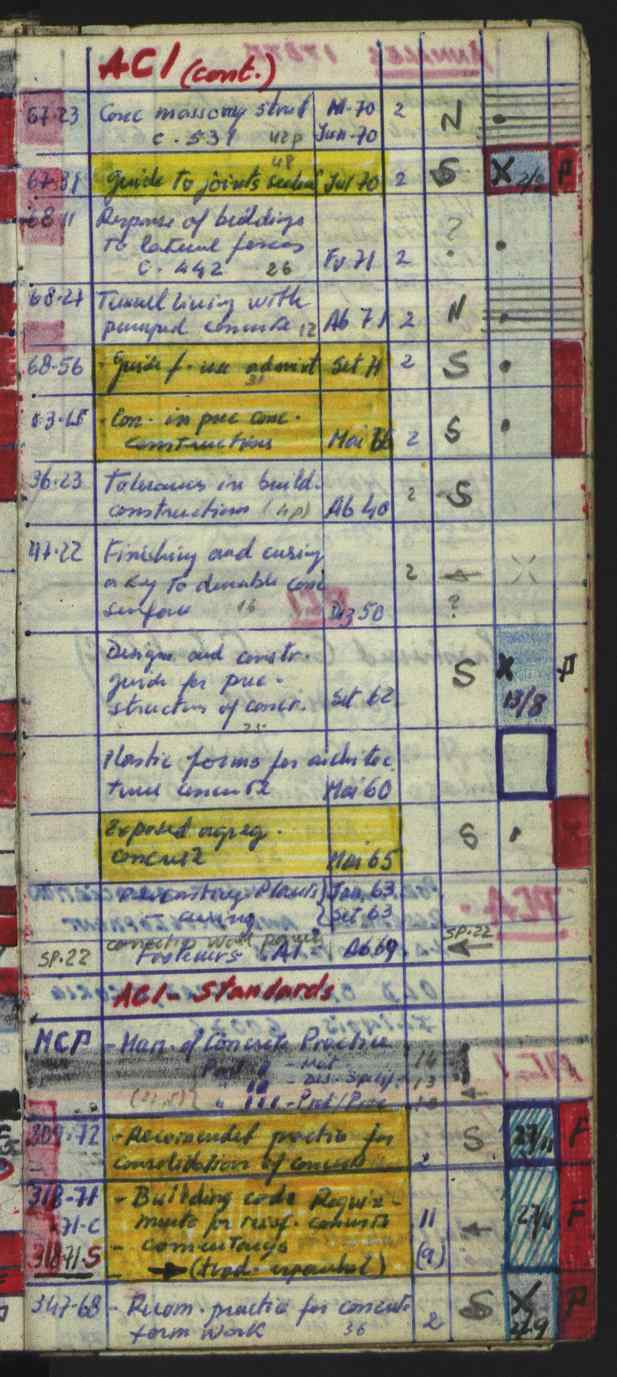 ACI (cont.)
67-23 Conc masonry struct Al-70 2 N
C. 531 42p Jun-70
48
Guide to joints sealant Jul 70 2 S X P
68-11 Response of buildings ?
to lateral forces
C. 442 26 Fv 71 2
68-27 Tunnel lining with
pumped concrete 12 Ab 71 2 N
68-56 Guide f. use admixt Set 71 2 S
31
Con. in prec conc.
constructions Mai 66 2 S
36-23 Tolerances in build.
constructions (4p) Ab 40 2 S
47-22 Finishing and curing
a key to durable conc 2
surface 16 Dz 50 ?
Design and constr.
guide for prec. S X P
structures of concr. Set 62 13/8
25
Plastic forms for architec
tural concrete Mai 60
Exposed aggreg. S
concrete Mai 65
Plants Jan. 63
curing Set 63
SP.22
SP.22 Fasteners AI. Ab 69
ACI - Standards
MCP - Man. of Concrete Practice
Part I - Mat 14
" II - Des. Specif. 13
" III - Prod/Proc
309-72 - Recomended practice for S 27/11 F
consolidation of concrete 2
318-71 - Building code Requir-
71-C ments for reinf. concrete 11 F
- comentarys (9)
318-71-S → (trad. español)
347-68 - Recom. practice for concrete S X P
form work 36 2